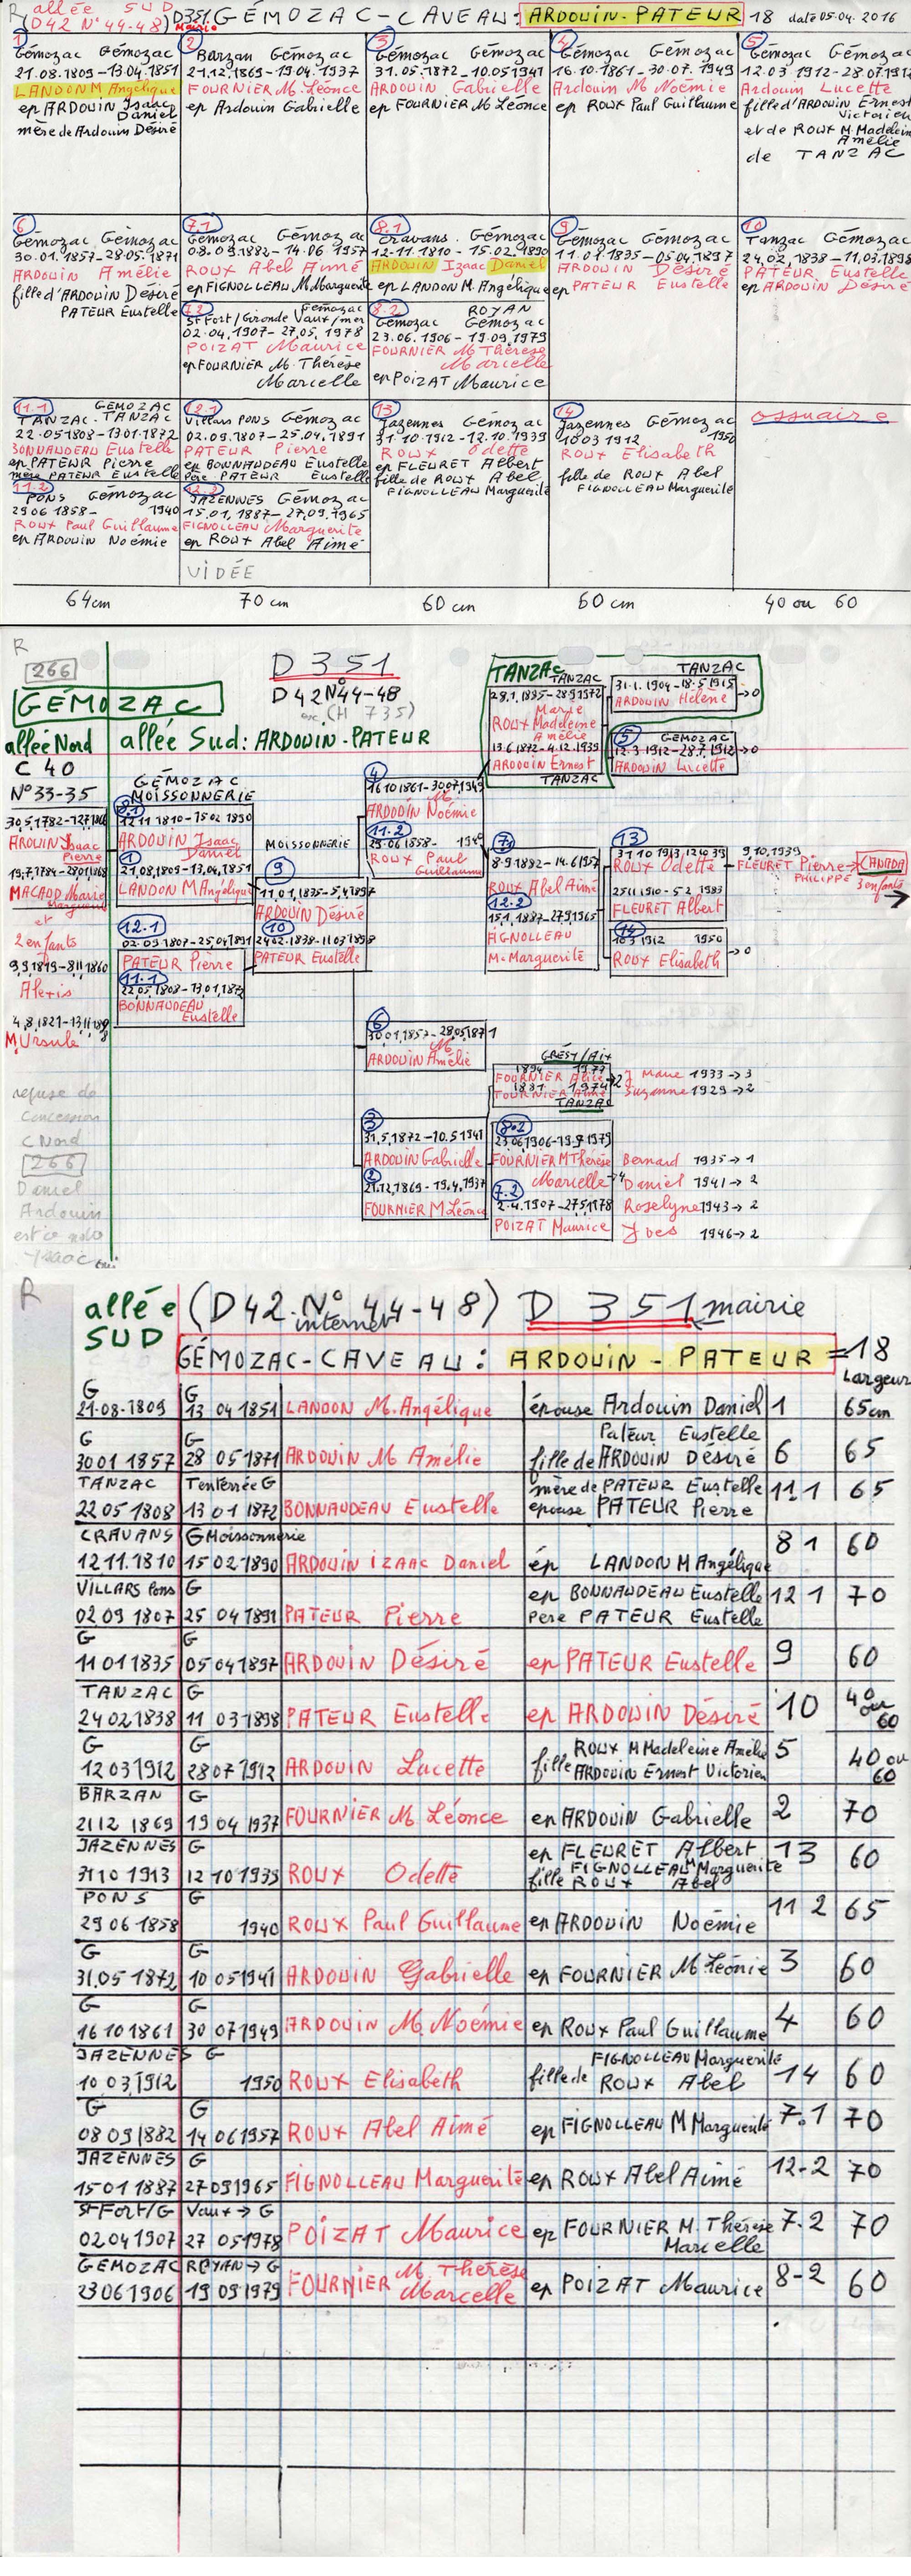 R allée SUD
(D42 N°44-48) D351 Mairie GÉMOZAC-CAVEAU: ARDOUIN-PATEUR 18 date 05.04.2016
1
Gémozac Gémozac
21.08.1809-13.04.1851
LANDON M Angélique
ep ARDOUIN Isaac
Daniel
mère de Ardouin Désiré
2
Barzan Gémozac
21.12.1869-19.04.1937
FOURNIER M. Léonce
ep Ardouin Gabrielle
3
Gémozac Gémozac
31.05.1872-10.05.1941
ARDOUIN Gabrielle
ep FOURNIER M. Léonce
4
Gémozac Gémozac
16.10.1861-30.07.1949
Ardouin M. Noémie
ep ROUX Paul Guillaume
5
Gémozac Gémozac
12.03.1912-28.07.1912
Ardouin Lucette
fille d'ARDOUIN Ernest
Victorien
et de ROUX M. Madelein
Amélie
de TANZAC
6
Gémozac Gémozac
30.01.1857-28.05.1871
ARDOUIN Amélie
fille d'ARDOUIN Désiré
PATEUR Eustelle
7.1
Gémozac Gémozac
08.09.1882-14.06 1957
ROUX Abel Aimé
ep FIGNOLLEAU M. Marguerite
7.2 Gémozac
St Fort/Gironde Vaux/mer
02.04.1907-27.05.1978
POIZAT Maurice
ep FOURNIER M. Thérèse
Marcelle
8.1
Cravans. Gémozac
12-11.1810-15.02.1890
ARDOUIN Izaac Daniel
ep LANDON M. Angélique
8.2 ROYAN
Gémozac Gémozac
23.06.1906-19.09.1979
FOURNIER M Thérèse
Marcelle
ep POIZAT Maurice
9
Gémozac Gémozac
11.01.1835-05.04.1897
ARDOUIN Désiré
ep PATEUR Eustelle
10
Tanzac Gémozac
24.02.1838-11.03.1898
PATEUR Eustelle
ep ARDOUIN Désiré
11.1 GÉMOZAC
TANZAC. TANZAC
22.05 1808-13 01-1872
BONNAUDEAU Eustelle
ep PATEUR Pierre
mère PATEUR Eustelle
11.2
PONS Gémozac
29 06 1858- 1940
ROUX Paul Guillaume
ep ARDOUIN Noémie
12.1
Villars PONS Gémozac
02.09.1807-25.04.1891
PATEUR Pierre
ep BONNAUDEAU Eustelle
Père PATEUR Eustelle
JAZENNES Gémozac
15.01.1887-27.09.1965
FIGNOLLEAU Marguerite
ep ROUX Abel Aimé
VIDÉE
13
Jazennes Gémozac
31.10.1912-12.10.1939
ROUX Odette
ep FLEURET Albert
fille de ROUX Abel
FIGNOLLEAU Marguerite
14
Jazennes Gémozac
10 03 1912 1950
ROUX Elisabeth
fille de ROUX Abel
FIGNOLLEAU Marguerite
ossuaire
64cm 70 cm 60 cm 60 cm 40 ou 60
R
266
GÉMOZAC
D 351
D42 N°44-48
(H 735)
allée Nord allée Sud: ARDOUIN-PATEUR
C 40
N°33-35
ARDUIN Isaac
Pierre
MACAUD Marie
et
2 enfants
9.9.1819-8.11.1860
Alexis
M. Ursule
refuse de
Concession
C Nord
266
Daniel
Ardouin
GÉMOZAC
MOISSONNERIE
8.1
12 11 1810-15 02 1890
ARDOUIN Isaac
Daniel
1
21.08.1809-13.04.1851
LANDON M Angélique
12.1
02.09.1807-25.04.1891
PATEUR Pierre
11.1
22.05.1808-13.01.1872
BONNAUDEAU
Eustelle
MOISSONNERIE
9
11.01.1835-5.4.1897
ARDOUIN Désiré
10
24 02.1838-11 03 1898
PATEUR Eustelle
4
16 10 1861-30 07 1949
M
ARDOUIN Noémie
11.2
29.06 1858- 1940
ROUX Paul
Guillaume
6
30.01.1857-28.05.1871
M
ARDOUIN Amélie
3
31.5.1872-10.5.1941
ARDOUIN Gabrielle
2
21.12.1869-19.4.1937
FOURNIER M Léonce
TANZAC
TANZAC
28.1.1895-28.9.1972
Marie
ROUX Madeleine
Amélie
13.6 1872-4.12.1939
ARDOUIN Ernest
TANZAC
TANZAC
31-1.1904-18.5 1915
ARDOUIN Hélène →0
5 GÉMOZAC
12.3 1912-28.7.1912
ARDOUIN Lucette →0
7.1
8-9.1882-14.6 1957
ROUX Abel Aimé
12.2
15.1.1887-27.9 1965
FIGNOLLEAU
M. Marguerite
13
31 10 1913 12 10 39
ROUX Odette
25 11 1910-5 2 1983
FLEURET Albert
9.10.1939
FLEURET Pierre→ CANADA
PHILIPPE 3 enfants
14
10 3 1912 1950
ROUX Elisabeth →0
GRÉSY/Aix
FOURNIER Alice →2 J Marie 1933→3
FOURNIER Aimé Suzanne 1929→2
TANZAC
8.2
23.06.1906-19.9.1979
FOURNIER M Thérèse Bernard 1935→1
Marcelle →4 Daniel 1941→2
7.2
2.4.1907-27 5 1978 Roselyne 1943→2
POIZAT Maurice Yves 1946→2
R allée SUD (D42.N° 44-48) D 351 mairie
internet
GÉMOZAC-CAVEAU: ARDOUIN-PATEUR =18
Largeur
G G
21-08-1809 13 04 1851 LANDON M. Angélique épouse Ardouin Daniel 1 65cm
G G Pateur Eustelle
30 01 1857 28 05 1871 ARDOUIN M Amélie fille de ARDOUIN Désiré 6 65
TANZAC T enterrée G mère de PATEUR Eustelle
22 05 1808 13 01 1872 BONNAUDEAU Eustelle épouse PATEUR Pierre 11.1 65
CRAVANS G Moissonnerie
12 11.1810 15 02 1890 ARDOUIN IZAAC Daniel ép LANDON M Angélique 8 1 60
VILLARS Pons G ep BONNAUDEAU Eustelle
02 09 1807 25 04 1891 PATEUR Pierre père PATEUR Eustelle 12 1 70
G G
11 01 1835 05 04 1897 ARDOUIN Désiré ep PATEUR Eustelle 9 60
TANZAC G
24 02 1838 11 03 1898 PATEUR Eustelle ep ARDOUIN Désiré 10 40 ou 60
G G ROUX M Madeleine Amélie
12 03 1912 28 07 1912 ARDOUIN Lucette fille ARDOUIN Ernest Victorien 5 40 ou 60
BARZAN G
21 12 1869 19 04 1937 FOURNIER M. Léonce ep ARDOUIN Gabrielle 2 70
JAZENNES G ep FLEURET Albert
FIGNOLLEAU M Marguerite
31 10 1913 12 10 1939 ROUX Odette fille ROUX Abel 13 60
PONS G
29 06 1858 1940 ROUX Paul Guillaume ep ARDOUIN Noémie 11 2 65
G G
31.05 1872 10 05 1941 ARDOUIN Gabrielle ep FOURNIER M Léonie 3 60
G G
16 10 1861 30 07 1949 ARDOUIN M Noémie ep ROUX Paul Guillaume 4 60
JAZENNES G FIGNOLLEAU Marguerite
10 03 1912 1950 ROUX Elisabeth fille de ROUX Abel 14 60
G G
08 09 1882 14 06 1957 ROUX Abel Aimé ep FIGNOLLEAU M Marguerite 7.1 70
JAZENNES G
15 01 1887 27 09 1965 FIGNOLLEAU Marguerite ep ROUX Abel Aimé 12-2 70
St FORT/G Vaux→G
02 04 1907 27 05 1978 POIZAT Maurice ep FOURNIER M. Thérèse 7.2 70
Marcelle
GEMOZAC ROYAN→G M. Thérèse
23 06 1906 19 09 1979 FOURNIER Marcelle ep POIZAT Maurice 8-2 60